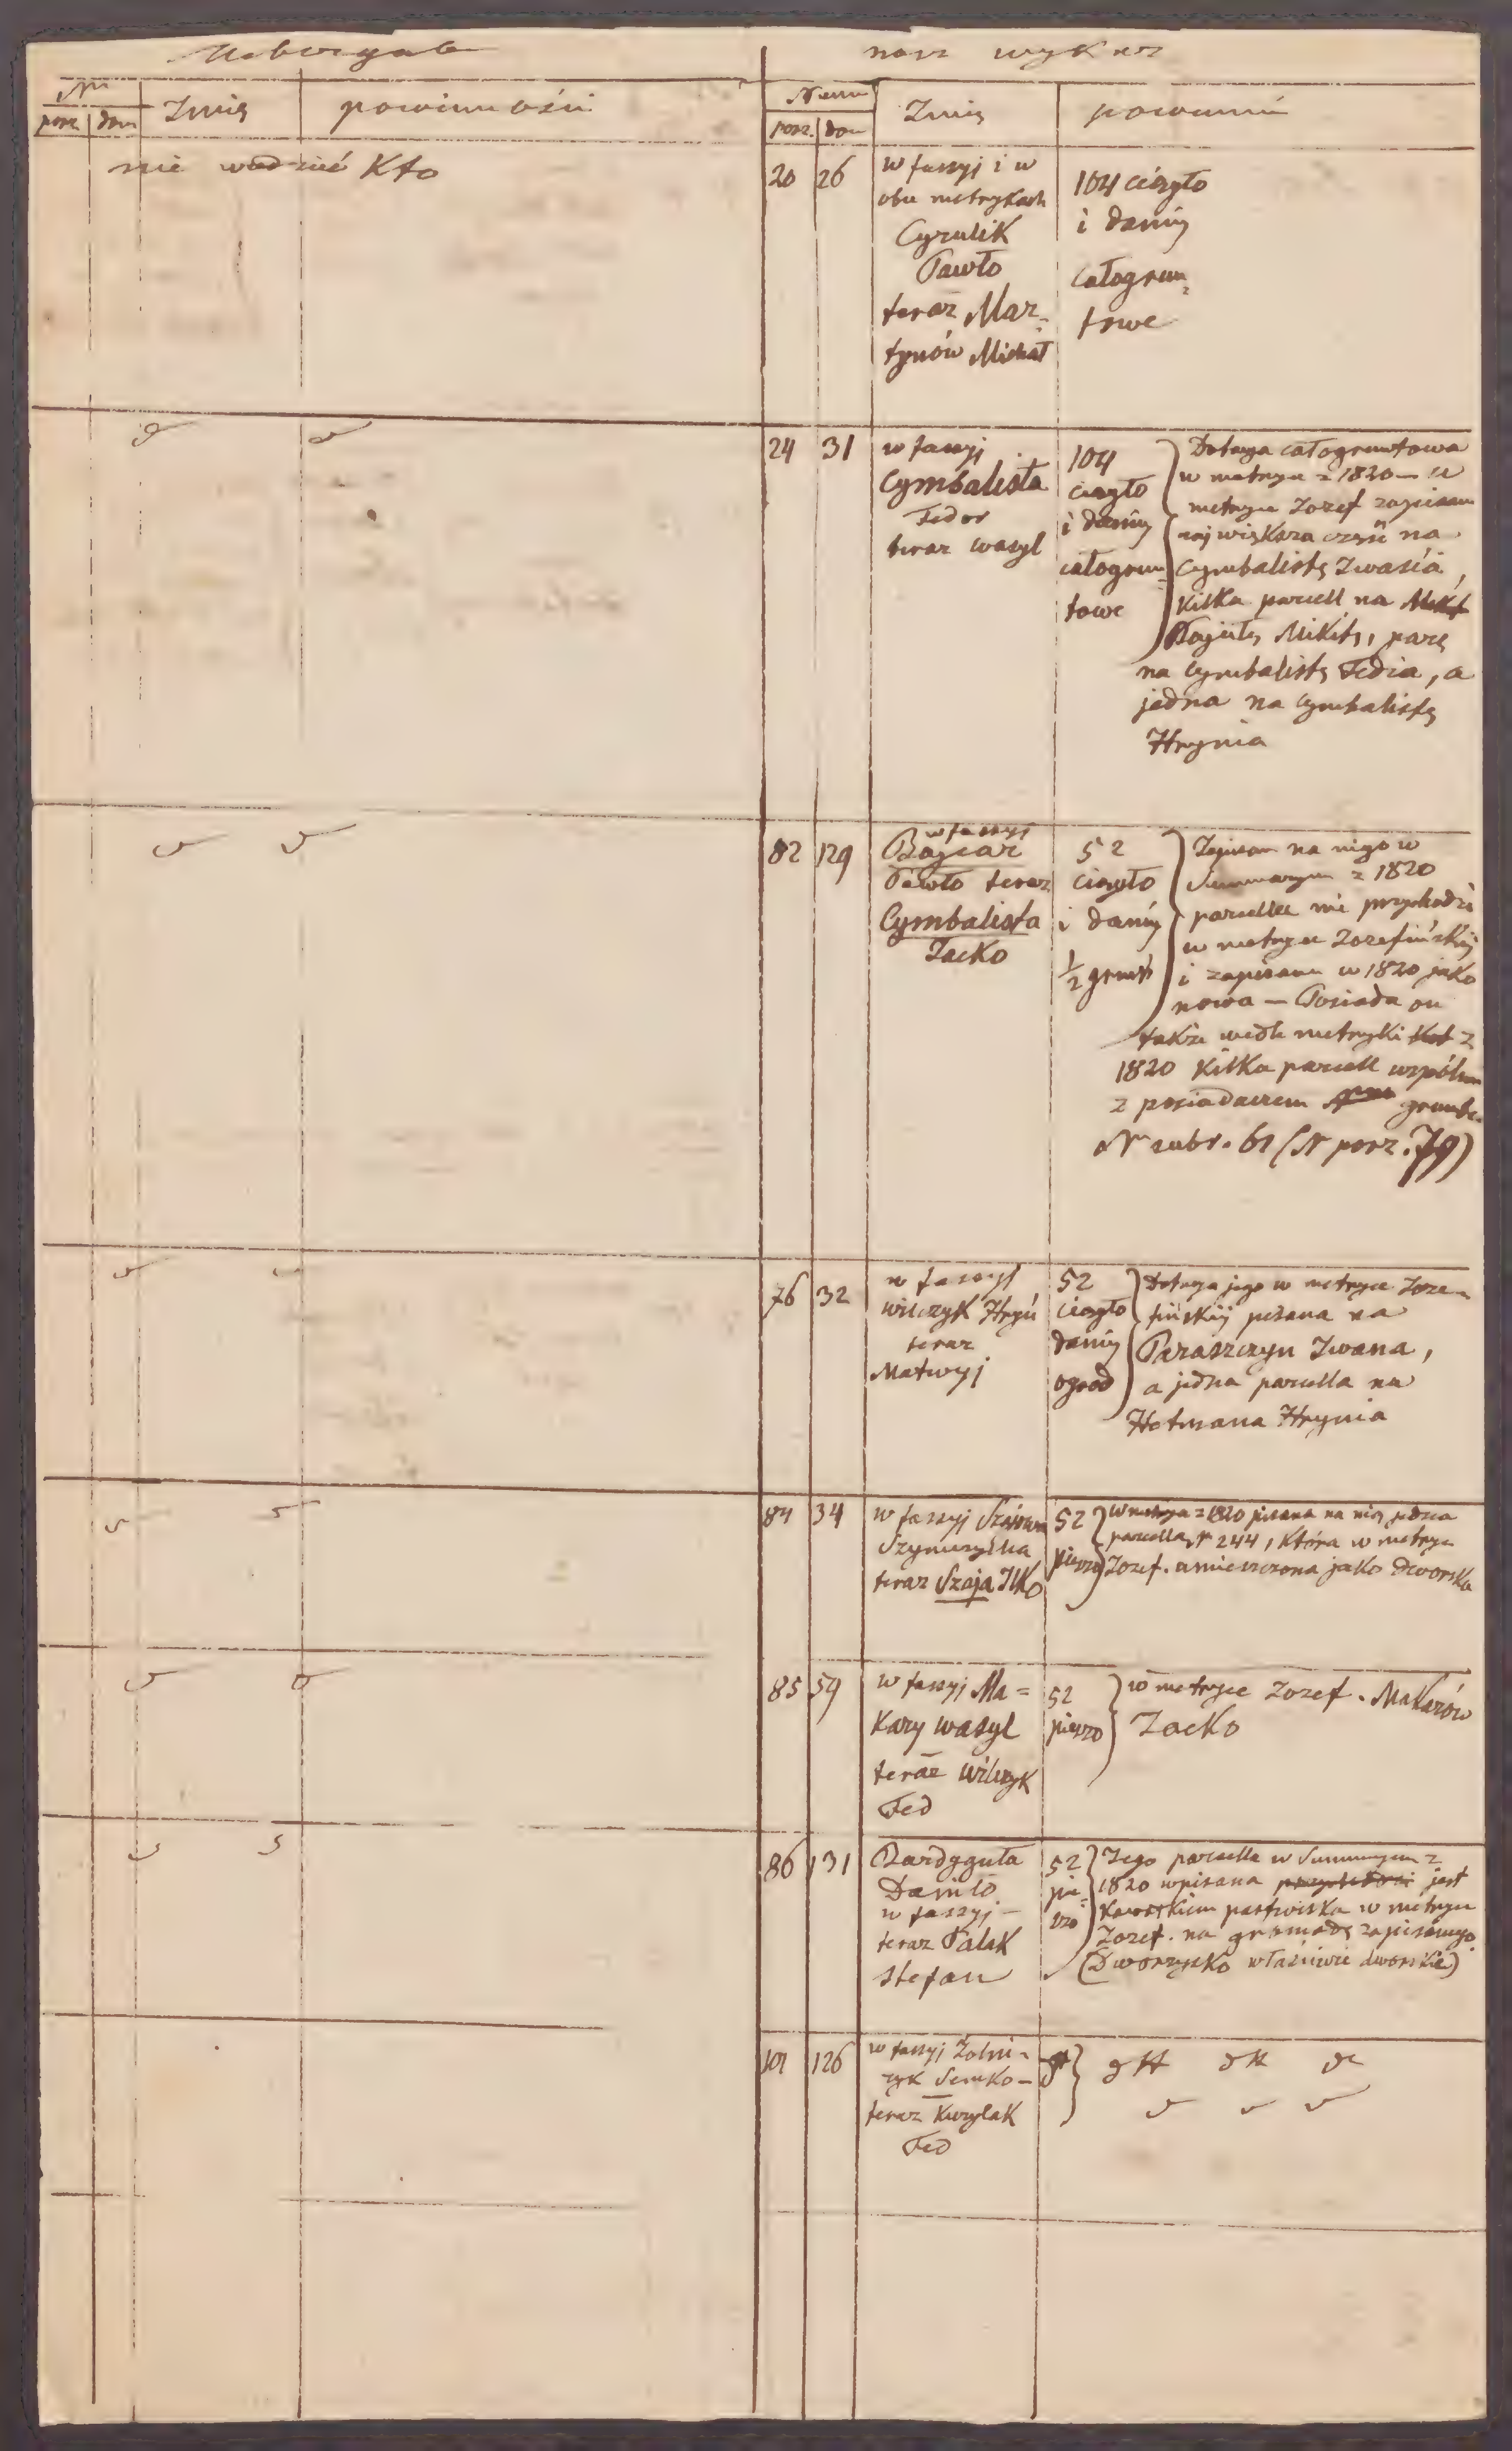 nasz wykaz
Nr
porz. dom
Imię
powinności
Numer
porz. dom
Imię
powinność
nie wiedzieć Kto
20 26
w fassyj i w
obu metrykach
Cyrulik
Pawło
teraz Mar=
tynów Michał
104 ciągło
i daniny
całogrun=
towe
24 31
w fassyj
Cymbalista
Fedor
teraz Wasyl
104
ciągło
i daniny
całogrun
towe
Dotacya całogruntowa
w metryce z 1820 — w
metryce Jozef zapisana
największa część na
Cymbalistę Iwasia,
Kilka parcell na
Mikitę, parę
na Cymbalistę Fedia, a
jedna na Cymbalistę
Hrynia
82 129
w fassyj
Bajcar
Pawło teraz
Cymbalista
Jacko
52
ciągło
i daniny
1/2 grunt
Zapisana na niego w
Summaryum z 1820
parcella nie przychodzi
w metryce Jozefińskiej
i zapisana w 1820 jako
nowa — Posiada on
także wedle metryki z
1820 Kilka parcell wspólnie
z posiadaczem gruntu
Nr subr. 61 (N porz. 79)
76 32
w fassyj
Wilczyk Hryń
teraz
Matwyj
52
ciągło
daniny
ogrod
Dotacya jego w metryce Joze=
fińskiej pisana na
Paraszczyn Iwana,
a jedna parcella na
Hetmana Hrynia
84 34
w fassyj
teraz Szaja Ilko
52
pieszo
W metryce z 1820 pisana na niego jedna
parcella N 244, Która w metryce
Jozef. umieszczona jako dworska
85 59
w fassyj Ma=
Kary Wasyl
teraz Wilczyk
Fed
52
pieszo
w metryce Jozef. Makarów
Jacko
86 131
Bardyguła
Daniło
w fassyj —
teraz Palak
Stefan
52
pie=
szo
Jego parcella w Summaryum z
1820 wpisana przychodzi jest
Kawałkiem pastwiska w metryce
Jozef. na gromadę zapisanego
(Dworzysko właściwie dworskie)
101 126
w fassyj Żołni=
rzyk Semko —
teraz Kurylak
Fed